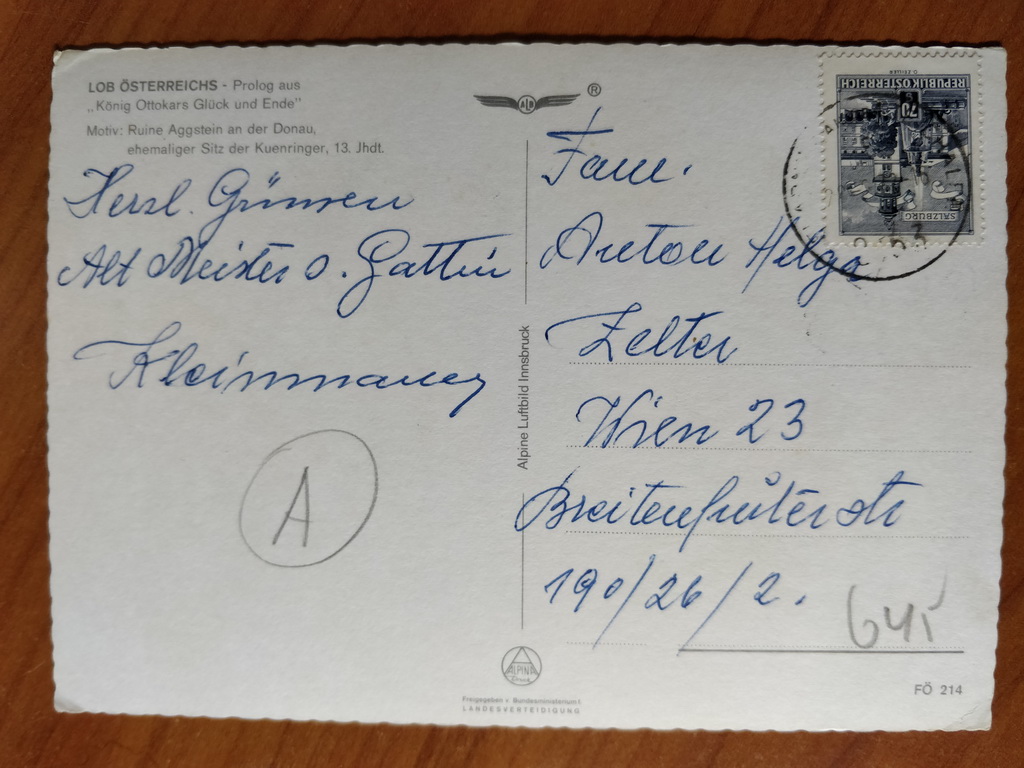 LOB ÖSTERREICHS - Prolog aus
„König Ottokars Glück und Ende"
Motiv: Ruine Aggstein an der Donau,
ehemaliger Sitz der Kuenringer, 13. Jhdt.
Herzl. Grüssen
Alt Meister u. Gattin
Kleinmauer
A
ALA
®
Alpine Luftbild Innsbruck
ALPINA
Druck
Freigegeben v. Bundesministerium f.
LANDESVERTEIDIGUNG
REPUBLIK ÖSTERREICH
SALZBURG
Fam.
Anton Helga
Zelter
Wien 23
Breitenfurter str
190/26/2.
FÖ 214